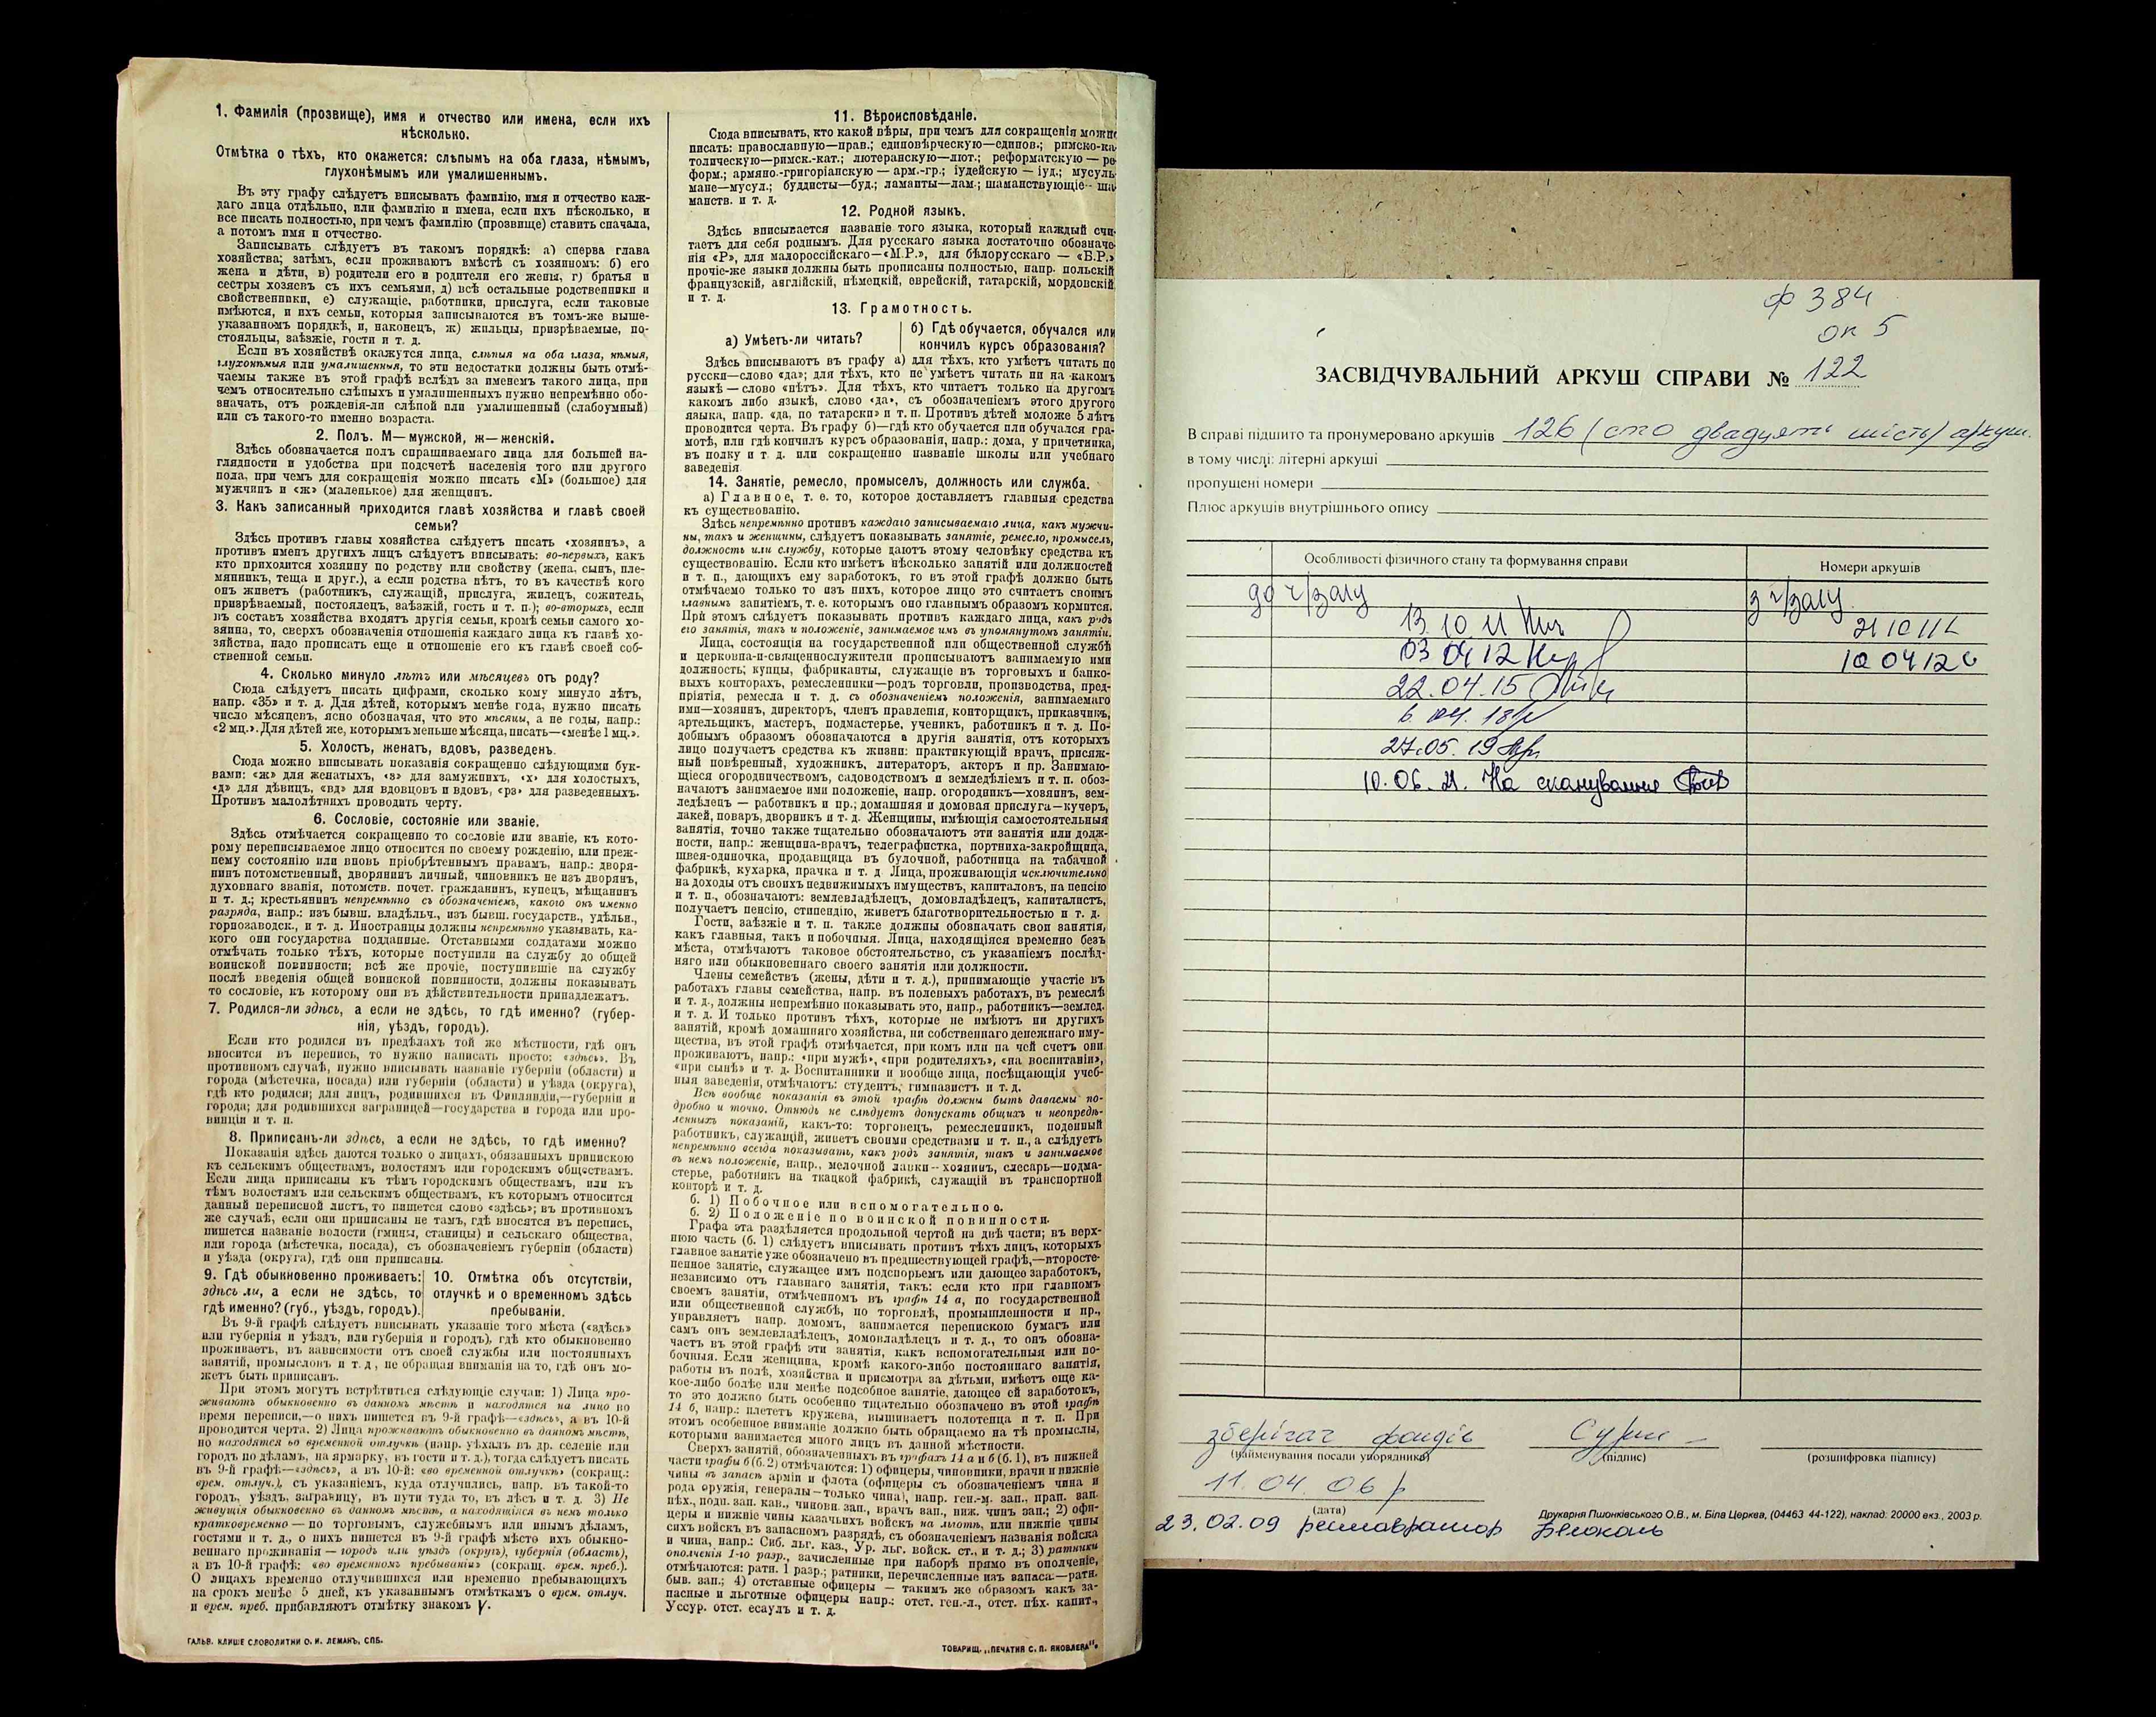 1. Фамилія (прозвище), имя и отчество или имена, если ихъ
нѣсколько.
Отмѣтка о тѣхъ, кто окажется: слѣпымъ на оба глаза, нѣмымъ,
глухонѣмымъ или умалишеннымъ.
Въ эту графу слѣдуетъ вписывать фамилію, имя и отчество каж-
даго лица отдѣльно, или фамилію и имена, если ихъ нѣсколько, и
все писать полностью, при чемъ фамилію (прозвище) ставить сначала,
а потомъ имя и отчество.
Записывать слѣдуетъ въ такомъ порядкѣ: а) сперва глава
хозяйства; затѣмъ, если проживаютъ вмѣстѣ съ хозяиномъ: б) его
жена и дѣти, в) родители его и родители его жены, г) братья и
сестры хозяевъ съ ихъ семьями, д) всѣ остальные родственники и
свойственники, е) служащіе, работники, прислуга, если таковые
имѣются, и ихъ семьи, которыя записываются въ томъ-же выше-
указанномъ порядкѣ, и, наконецъ, ж) жильцы, призрѣваемые, по-
стояльцы, заѣзжіе, гости и т. п.
Если въ хозяйствѣ окажутся лица, слѣпыя на оба глаза, нѣмыя,
глухонѣмыя или умалишенныя, то эти недостатки должны быть отмѣ-
чаемы также въ этой графѣ вслѣдъ за именемъ такого лица, при
чемъ относительно слѣпыхъ и умалишенныхъ нужно непремѣнно обо-
значать, отъ рожденія-ли слѣпой или умалишенный (слабоумный)
или съ такого-то именно возраста.
2. Полъ. М—мужской, ж—женскій.
Здѣсь обозначается полъ спрашиваемаго лица для большей на-
глядности и удобства при подсчетѣ населенія того или другого
пола, при чемъ для сокращенія можно писать «М» (большое) для
мужчинъ и «ж» (маленькое) для женщинъ.
3. Какъ записанный приходится главѣ хозяйства и главѣ своей
семьи?
Здѣсь противъ главы хозяйства слѣдуетъ писать «хозяинъ», а
противъ именъ другихъ лицъ слѣдуетъ вписывать: во-первыхъ, какъ
кто приходится хозяину по родству или свойству (жена, сынъ, пле-
мянникъ, теща и друг.), а если родства нѣтъ, то въ качествѣ кого
онъ живетъ (работникъ, служащій, прислуга, жилецъ, сожитель,
призрѣваемый, постоялецъ, заѣзжій, гость и т. п.); во-вторыхъ, если
въ составъ хозяйства входятъ другія семьи, кромѣ семьи самого хо-
зяина, то, сверхъ обозначенія отношенія каждаго лица къ главѣ хо-
зяйства, надо прописать еще и отношеніе его къ главѣ своей соб-
ственной семьи.
4. Сколько минуло лѣтъ или мѣсяцевъ отъ роду?
Сюда слѣдуетъ писать цифрами, сколько кому минуло лѣтъ,
напр. «35» и т. д. Для дѣтей, которымъ менѣе года, нужно писать
число мѣсяцевъ, ясно обозначая, что это мѣсяцы, а не годы, напр.:
«2 мц.». Для дѣтей же, которымъ меньше мѣсяца, писать—«менѣе 1 мц.».
5. Холостъ, женатъ, вдовъ, разведенъ.
Сюда можно вписывать показанія сокращенно слѣдующими бук-
вами: «ж» для женатыхъ, «з» для замужнихъ, «х» для холостыхъ,
«д» для дѣвицъ, «вд» для вдовцовъ и вдовъ, «рз» для разведенныхъ.
Противъ малолѣтнихъ проводить черту.
6. Сословіе, состояніе или званіе.
Здѣсь отмѣчается сокращенно то сословіе или званіе, къ кото-
рому переписываемое лицо относится по своему рожденію, или преж-
нему состоянію или вновь пріобрѣтеннымъ правамъ, напр.: дворя-
нинъ потомственный, дворянинъ личный, чиновникъ не изъ дворянъ,
духовнаго званія, потомств. почет. гражданинъ, купецъ, мѣщанинъ
и т. д.; крестьянинъ непремѣнно съ обозначеніемъ, какого онъ именно
разряда, напр.: изъ бывш. владѣльч., изъ бывш. государств., удѣльн.,
горнозаводск., и т. д. Иностранцы должны непремѣнно указывать, ка-
кого они государства подданные. Отставными солдатами можно
отмѣчать только тѣхъ, которые поступили на службу до общей
воинской повинности; всѣ же прочіе, поступившіе на службу
послѣ введенія общей воинской повинности, должны показывать
то сословіе, къ которому они въ дѣйствительности принадлежатъ.
7. Родился-ли здѣсь, а если не здѣсь, то гдѣ именно? (губер-
нія, уѣздъ, городъ).
Если кто родился въ предѣлахъ той же мѣстности, гдѣ онъ
вносится въ перепись, то нужно написать просто: «здѣсь». Въ
противномъ случаѣ, нужно вписывать названіе губерніи (области) и
города (мѣстечка, посада) или губерніи (области) и уѣзда (округа),
гдѣ кто родился; для лицъ, родившихся въ Финляндіи,—губерніи и
города; для родившихся заграницей—государства и города или про-
винціи и т. п.
8. Приписанъ-ли здѣсь, а если не здѣсь, то гдѣ именно?
Показанія здѣсь даются только о лицахъ, обязанныхъ припискою
къ сельскимъ обществамъ, волостямъ или городскимъ обществамъ.
Если лица приписаны къ тѣмъ городскимъ обществамъ, или къ
тѣмъ волостямъ или сельскимъ обществамъ, къ которымъ относится
данный переписной листъ, то пишется слово «здѣсь»; въ противномъ
же случаѣ, если они приписаны не тамъ, гдѣ вносятся въ перепись,
пишется названіе волости (гмины, станицы) и сельскаго общества,
или города (мѣстечка, посада), съ обозначеніемъ губерніи (области)
и уѣзда (округа), гдѣ они приписаны.
9. Гдѣ обыкновенно проживаетъ: 10. Отмѣтка объ отсутствіи,
здѣсь ли, а если не здѣсь, то отлучкѣ и о временномъ здѣсь
гдѣ именно? (губ., уѣздъ, городъ). пребываніи.
Въ 9-й графѣ слѣдуетъ вписывать указаніе того мѣста («здѣсь»
или губернія и уѣздъ, или губернія и городъ), гдѣ кто обыкновенно
проживаетъ, въ зависимости отъ своей службы или постоянныхъ
занятій, промысловъ и т. д., не обращая вниманія на то, гдѣ онъ мо-
жетъ быть приписанъ.
При этомъ могутъ встрѣтиться слѣдующіе случаи: 1) Лица про-
живаютъ обыкновенно въ данномъ мѣстѣ и находятся на лицо во
время переписи,—о нихъ пишется въ 9-й графѣ—«здѣсь», а въ 10-й
проводится черта. 2) Лица проживаютъ обыкновенно въ данномъ мѣстѣ,
но находятся во временной отлучкѣ (напр. уѣхалъ въ др. селеніе или
городъ по дѣламъ, на ярмарку, въ гости и т. д.), тогда слѣдуетъ писать
въ 9-й графѣ—«здѣсь», а въ 10-й: «во временной отлучкѣ» (сокращ.:
врем. отлуч.), съ указаніемъ, куда отлучились, напр. въ такой-то
городъ, уѣздъ, заграницу, въ пути туда то, въ лѣсъ и т. д. 3) Не
живущія обыкновенно въ данномъ мѣстѣ, а находящіяся въ немъ только
кратковременно — по торговымъ, служебнымъ или инымъ дѣламъ,
гостями и т. д., о нихъ пишется въ 9-й графѣ мѣсто ихъ обыкно-
веннаго проживанія — городъ или уѣздъ (округъ), губернія (область),
а въ 10-й графѣ: «во временномъ пребываніи» (сокращ. врем. преб.).
О лицахъ временно отлучившихся или временно пребывающихъ
на срокъ менѣе 5 дней, къ указаннымъ отмѣткамъ о врем. отлуч.
и врем. преб. прибавляютъ отмѣтку знакомъ V.
ГАЛЬВ. КЛИШЕ СЛОВОЛИТНИ О. И. ЛЕМАНЪ, СПБ.
11. Вѣроисповѣданіе.
Сюда вписывать, кто какой вѣры, при чемъ для сокращенія можно
писать: православную—прав.; единовѣрческую—единов.; римско-ка-
толическую—римск.-кат.; лютеранскую—лют.; реформатскую — ре-
форм.; армяно.-григоріанскую — арм.-гр.; іудейскую — іуд.; мусуль-
мане—мусул.; буддисты—буд.; ламаиты—лам.; шаманствующіе—ша-
манств. и т. д.
12. Родной языкъ.
Здѣсь вписывается названіе того языка, который каждый счи-
таетъ для себя роднымъ. Для русскаго языка достаточно обозначе-
нія «Р», для малороссійскаго—«М.Р.», для бѣлорусскаго — «Б.Р.»
прочіе-же языки должны быть прописаны полностью, напр. польскій
французскій, англійскій, нѣмецкій, еврейскій, татарскій, мордовскій
и т. д.
13. Грамотность.
а) Умѣетъ-ли читать? б) Гдѣ обучается, обучался или
кончилъ курсъ образованія?
Здѣсь вписываютъ въ графу а) для тѣхъ, кто умѣетъ читать по
русски—слово «да»; для тѣхъ, кто не умѣетъ читать ни на какомъ
языкѣ — слово «нѣтъ». Для тѣхъ, кто читаетъ только на другомъ
какомъ либо языкѣ, слово «да», съ обозначеніемъ этого другого
языка, напр. «да, по татарски» и т. п. Противъ дѣтей моложе 5 лѣтъ
проводится черта. Въ графу б)—гдѣ кто обучается или обучался гра-
мотѣ, или гдѣ кончилъ курсъ образованія, напр.: дома, у причетника,
въ полку и т. д. или сокращенно названіе школы или учебнаго
заведенія.
14. Занятіе, ремесло, промыселъ, должность или служба.
а) Главное, т. е. то, которое доставляетъ главныя средства
къ существованію.
Здѣсь непремѣнно противъ каждаго записываемаго лица, какъ мужчи-
ны, такъ и женщины, слѣдуетъ показывать занятіе, ремесло, промыселъ,
должность или службу, которые даютъ этому человѣку средства къ
существованію. Если кто имѣетъ нѣсколько занятій или должностей
и т. п., дающихъ ему заработокъ, то въ этой графѣ должно быть
отмѣчаемо только то изъ нихъ, которое лицо это считаетъ своимъ
главнымъ занятіемъ, т. е. которымъ оно главнымъ образомъ кормится.
При этомъ слѣдуетъ показывать противъ каждаго лица, какъ родъ
его занятія, такъ и положеніе, занимаемое имъ въ упомянутомъ занятіи.
Лица, состоящія на государственной или общественной службѣ
и церковно-и-священнослужители прописываютъ занимаемую ими
должность; купцы, фабриканты, служащіе въ торговыхъ и банко-
выхъ конторахъ, ремесленники—родъ торговли, производства, пред-
пріятія, ремесла и т. д. съ обозначеніемъ положенія, занимаемаго
ими—хозяинъ, директоръ, членъ правленія, конторщикъ, приказчикъ,
артельщикъ, мастеръ, подмастерье, ученикъ, работникъ и т. д. По-
добнымъ образомъ обозначаются и другія занятія, отъ которыхъ
лицо получаетъ средства къ жизни: практикующій врачъ, присяж-
ный повѣренный, художникъ, литераторъ, актеръ и пр. Занимаю-
щіеся огородничествомъ, садоводствомъ и земледѣліемъ и т. п. обоз-
начаютъ занимаемое ими положеніе, напр. огородникъ—хозяинъ, зем-
ледѣлецъ — работникъ и пр.; домашняя и домовая прислуга—кучеръ,
лакей, поваръ, дворникъ и т. д. Женщины, имѣющія самостоятельныя
занятія, точно также тщательно обозначаютъ эти занятія или долж-
ности, напр.: женщина-врачъ, телеграфистка, портниха-закройщица,
швея-одиночка, продавщица въ булочной, работница на табачной
фабрикѣ, кухарка, прачка и т. д. Лица, проживающія исключительно
на доходы отъ своихъ недвижимыхъ имуществъ, капиталовъ, на пенсію
и т. п., обозначаютъ: землевладѣлецъ, домовладѣлецъ, капиталистъ,
получаетъ пенсію, стипендію, живетъ благотворительностью и т. д.
Гости, заѣзжіе и т. п. также должны обозначать свои занятія,
какъ главныя, такъ и побочныя. Лица, находящіяся временно безъ
мѣста, отмѣчаютъ таковое обстоятельство, съ указаніемъ послѣд-
няго или обыкновеннаго своего занятія или должности.
Члены семействъ (жены, дѣти и т. д.), принимающіе участіе въ
работахъ главы семейства, напр. въ полевыхъ работахъ, въ ремеслѣ
и т. д., должны непремѣнно показывать это, напр., работникъ—землед.
и т. д. И только противъ тѣхъ, которые не имѣютъ ни другихъ
занятій, кромѣ домашняго хозяйства, ни собственнаго денежнаго иму-
щества, въ этой графѣ отмѣчается, при комъ или на чей счетъ они
проживаютъ, напр.: «при мужѣ», «при родителяхъ», «на воспитаніи»,
«при сынѣ» и т. д. Воспитанники и вообще лица, посѣщающія учеб-
ныя заведенія, отмѣчаютъ: студентъ, гимназистъ и т. д.
Всѣ вообще показанія въ этой графѣ должны быть даваемы по-
дробно и точно. Отнюдь не слѣдуетъ допускать общихъ и неопредѣ-
ленныхъ показаній, какъ-то: торговецъ, ремесленникъ, поденный
работникъ, служащій, живетъ своими средствами и т. п., а слѣдуетъ
непремѣнно всегда показывать, какъ родъ занятія, такъ и занимаемое
въ немъ положеніе, напр., мелочной лавки—хозяинъ, слесарь—подма-
стерье, работникъ на ткацкой фабрикѣ, служащій въ транспортной
конторѣ и т. д.
б. 1) Побочное или вспомогательное.
б. 2) Положеніе по воинской повинности.
Графа эта раздѣляется продольной чертой на двѣ части; въ верх-
нюю часть (б. 1) слѣдуетъ вписывать противъ тѣхъ лицъ, которыхъ
главное занятіе уже обозначено въ предшествующей графѣ,—второсте-
пенное занятіе, служащее имъ подспорьемъ или дающее заработокъ,
независимо отъ главнаго занятія, такъ: если кто при главномъ
своемъ занятіи, отмѣченномъ въ графѣ 14 а, по государственной
или общественной службѣ, по торговлѣ, промышленности и пр.,
управляетъ напр. домомъ, занимается перепискою бумагъ или
самъ онъ землевладѣлецъ, домовладѣлецъ и т. д., то онъ обозна-
чаетъ въ этой графѣ эти занятія, какъ вспомогательныя или по-
бочныя. Если женщина, кромѣ какого-либо постояннаго занятія,
работы въ полѣ, хозяйства и присмотра за дѣтьми, имѣетъ еще ка-
кое-либо болѣе или менѣе подсобное занятіе, дающее ей заработокъ,
то это должно быть особенно тщательно обозначено въ этой графѣ
14 б, напр.: плететъ кружева, вышиваетъ полотенца и т. п. При
этомъ особенное вниманіе должно быть обращаемо на тѣ промыслы,
которыми занимается много лицъ въ данной мѣстности.
Сверхъ занятій, обозначенныхъ въ графахъ 14 а и б (б. 1), въ нижней
части графы б (б. 2) отмѣчаются: 1) офицеры, чиновники, врачи и нижніе
чины въ запасѣ арміи и флота (офицеры съ обозначеніемъ чина и
рода оружія, генералы—только чина), напр. ген.-м. зап., прап. зап.
пѣх., подп. зап. кав., чиновн. зап., врачъ зап., ниж. чинъ зап.; 2) офи-
церы и нижніе чины казачьихъ войскъ на льготѣ, или нижніе чины
сихъ войскъ въ запасномъ разрядѣ, съ обозначеніемъ названія войска
и чина, напр.: Сиб. льг. каз., Ур. льг. войск. ст., и т. д.; 3) ратники
ополченія 1-го разр., зачисленные при наборѣ прямо въ ополченіе,
отмѣчаются: ратн. 1 разр.; ратники, перечисленные изъ запаса:—ратн.
быв. зап.; 4) отставные офицеры — такимъ же образомъ какъ за-
пасные и льготные офицеры напр.: отст. ген.-л., отст. пѣх. капит.,
Уссур. отст. есаулъ и т. д.
ТОВАРИЩ. „ПЕЧАТНЯ С. П. ЯКОВЛЕВА“.
ф 384
оп 5
ЗАСВІДЧУВАЛЬНИЙ АРКУШ СПРАВИ № 122
В справі підшито та пронумеровано аркушів 126 (сто двадцять шість) аркуш.
в тому числі: літерні аркуші
пропущені номери
Плюс аркушів внутрішнього опису
Особливості фізичного стану та формування справи Номери аркушів
до ч/залу з ч/залу
13.10.11 21 10 11
03 04 12 10 04 12
22.04.15
6. 04. 18
27.05.19
10.06.21. На сканування
зберігач фондів
(найменування посади упорядника) (підпис) (розшифровка підпису)
11.04.06 р
(дата)
Друкарня Пшонківського О.В., м. Біла Церква, (04463 44-122), наклад. 20000 екз., 2003 р.
23.02.09 реставратор Белоконь